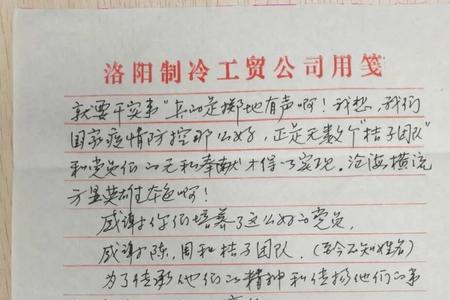 洛阳制冷工贸公司用笺
就要干实事"真的是掷地有声啊!我想,我们
国家疫情防控那么好,正是无数个"桔子团队"
和党员们的无私奉献才得以实现。沧海横流
方显英雄本色啊!
感谢你们培养了这么好的党员,
感谢陈、周和桔子团队。(至今不知姓名)
为了传承他们的精神和传扬他们的事